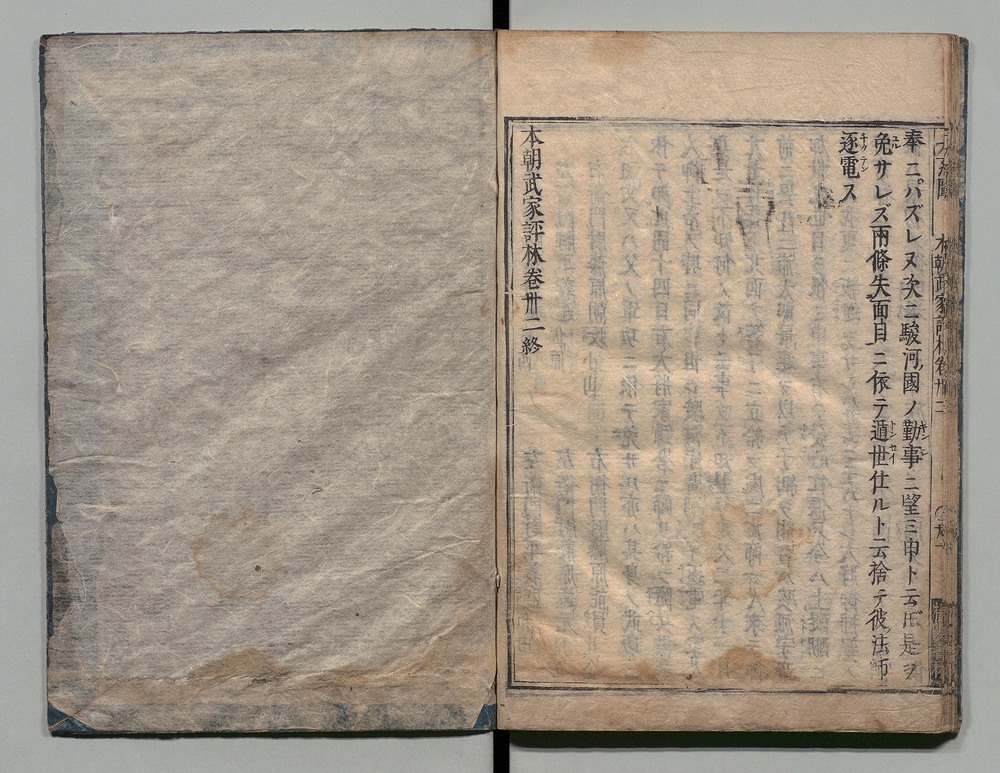 本朝武家評林卷卅二
奉ニハズレヌ次ニ駿河國ノ勤事ニ望ミ申ト云𪜈是ヲ
免サレズ兩條失面目ニ依テ遁世仕ルト云捨テ彼法師
逐電ス
本朝武家評林卷卅二終